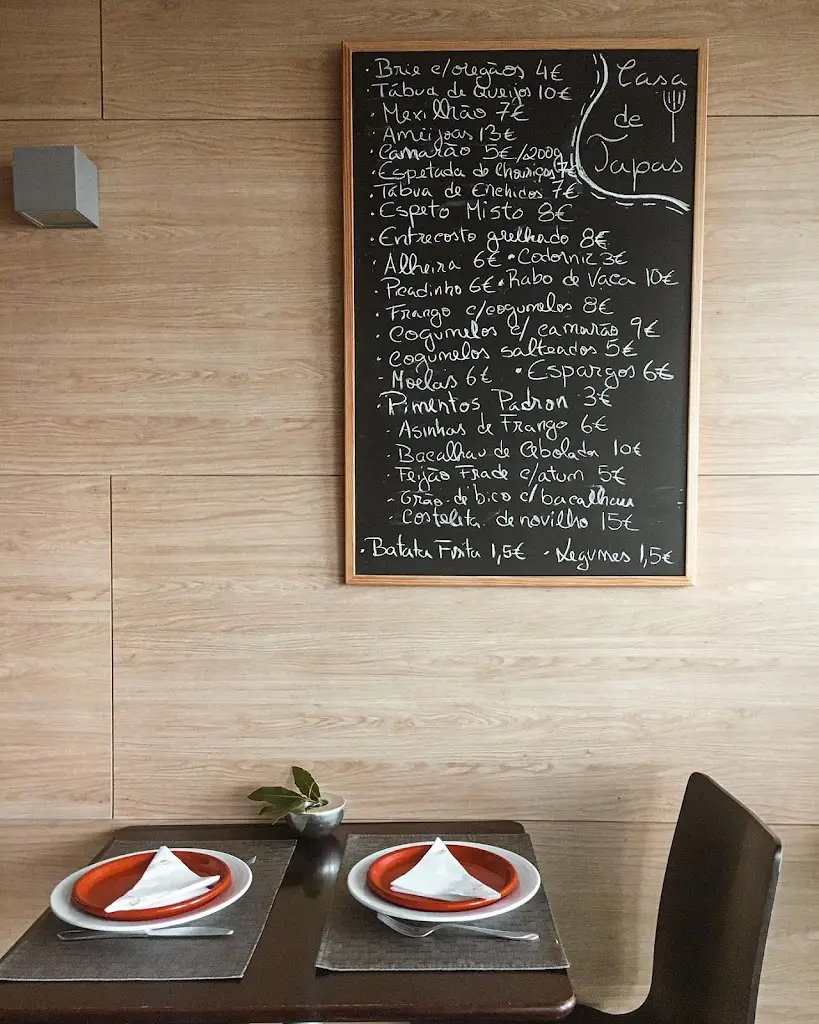 Casa
de
Tapas
· Brie c/oregãos 4€
· Tábua de Queijos 10€
· Mexilhão 7€
· Ameijoas 13€
· Camarão 5€/200g
· Espetada de Chouriços 7€
· Tábua de Enchidos 7€
· Espeto Misto 8€
· Entrecosto grelhado 8€
· Alheira 6€ · Codorniz 3€
· Picadinho 6€ · Rabo de Vaca 10€
· Frango c/cogumelos 8€
· Cogumelos c/ camarão 9€
· Cogumelos salteados 5€
- Moelas 6€ · Espargos 6€
· Pimentos Padron 3€
- Asinhas de Frango 6€
- Bacalhau de Cebolada 10€
- Feijão Frade c/atum 5€
- Grão de bico c/bacalhau
- Costeleta de novilho 15€
· Batata Frita 1,5€ · Legumes 1,5€